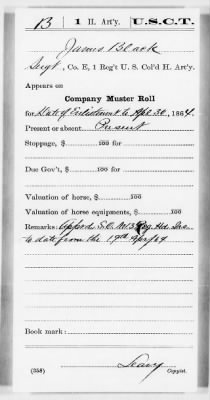 B | 1 | H. Art'y. | U.S.C.T.
James Black
Sergt, Co. E, 1 Reg't U. S. Col'd H. Art'y.
Appears on
Company Muster Roll
for Date of Enlistment to Apl 30, 1864.
Present or absent Present
Stoppage, $ 100 for
Due Gov't, $ 100 for
Valuation of horse, $ 100
Valuation of horse equipments, $ 100
Remarks: Appd S.O. No 3 Reg. Hd. Qrs
to date from the 19th Apr/64
Book mark:
(358) Copyist.